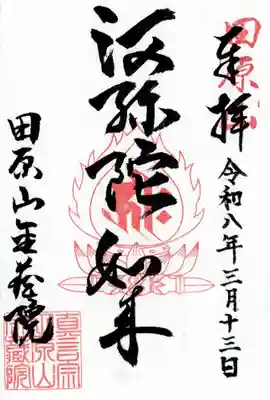 奉拝
令和八年三月十三日
阿弥陀如来
田原山金蔵院
真言宗
田原山
金蔵院